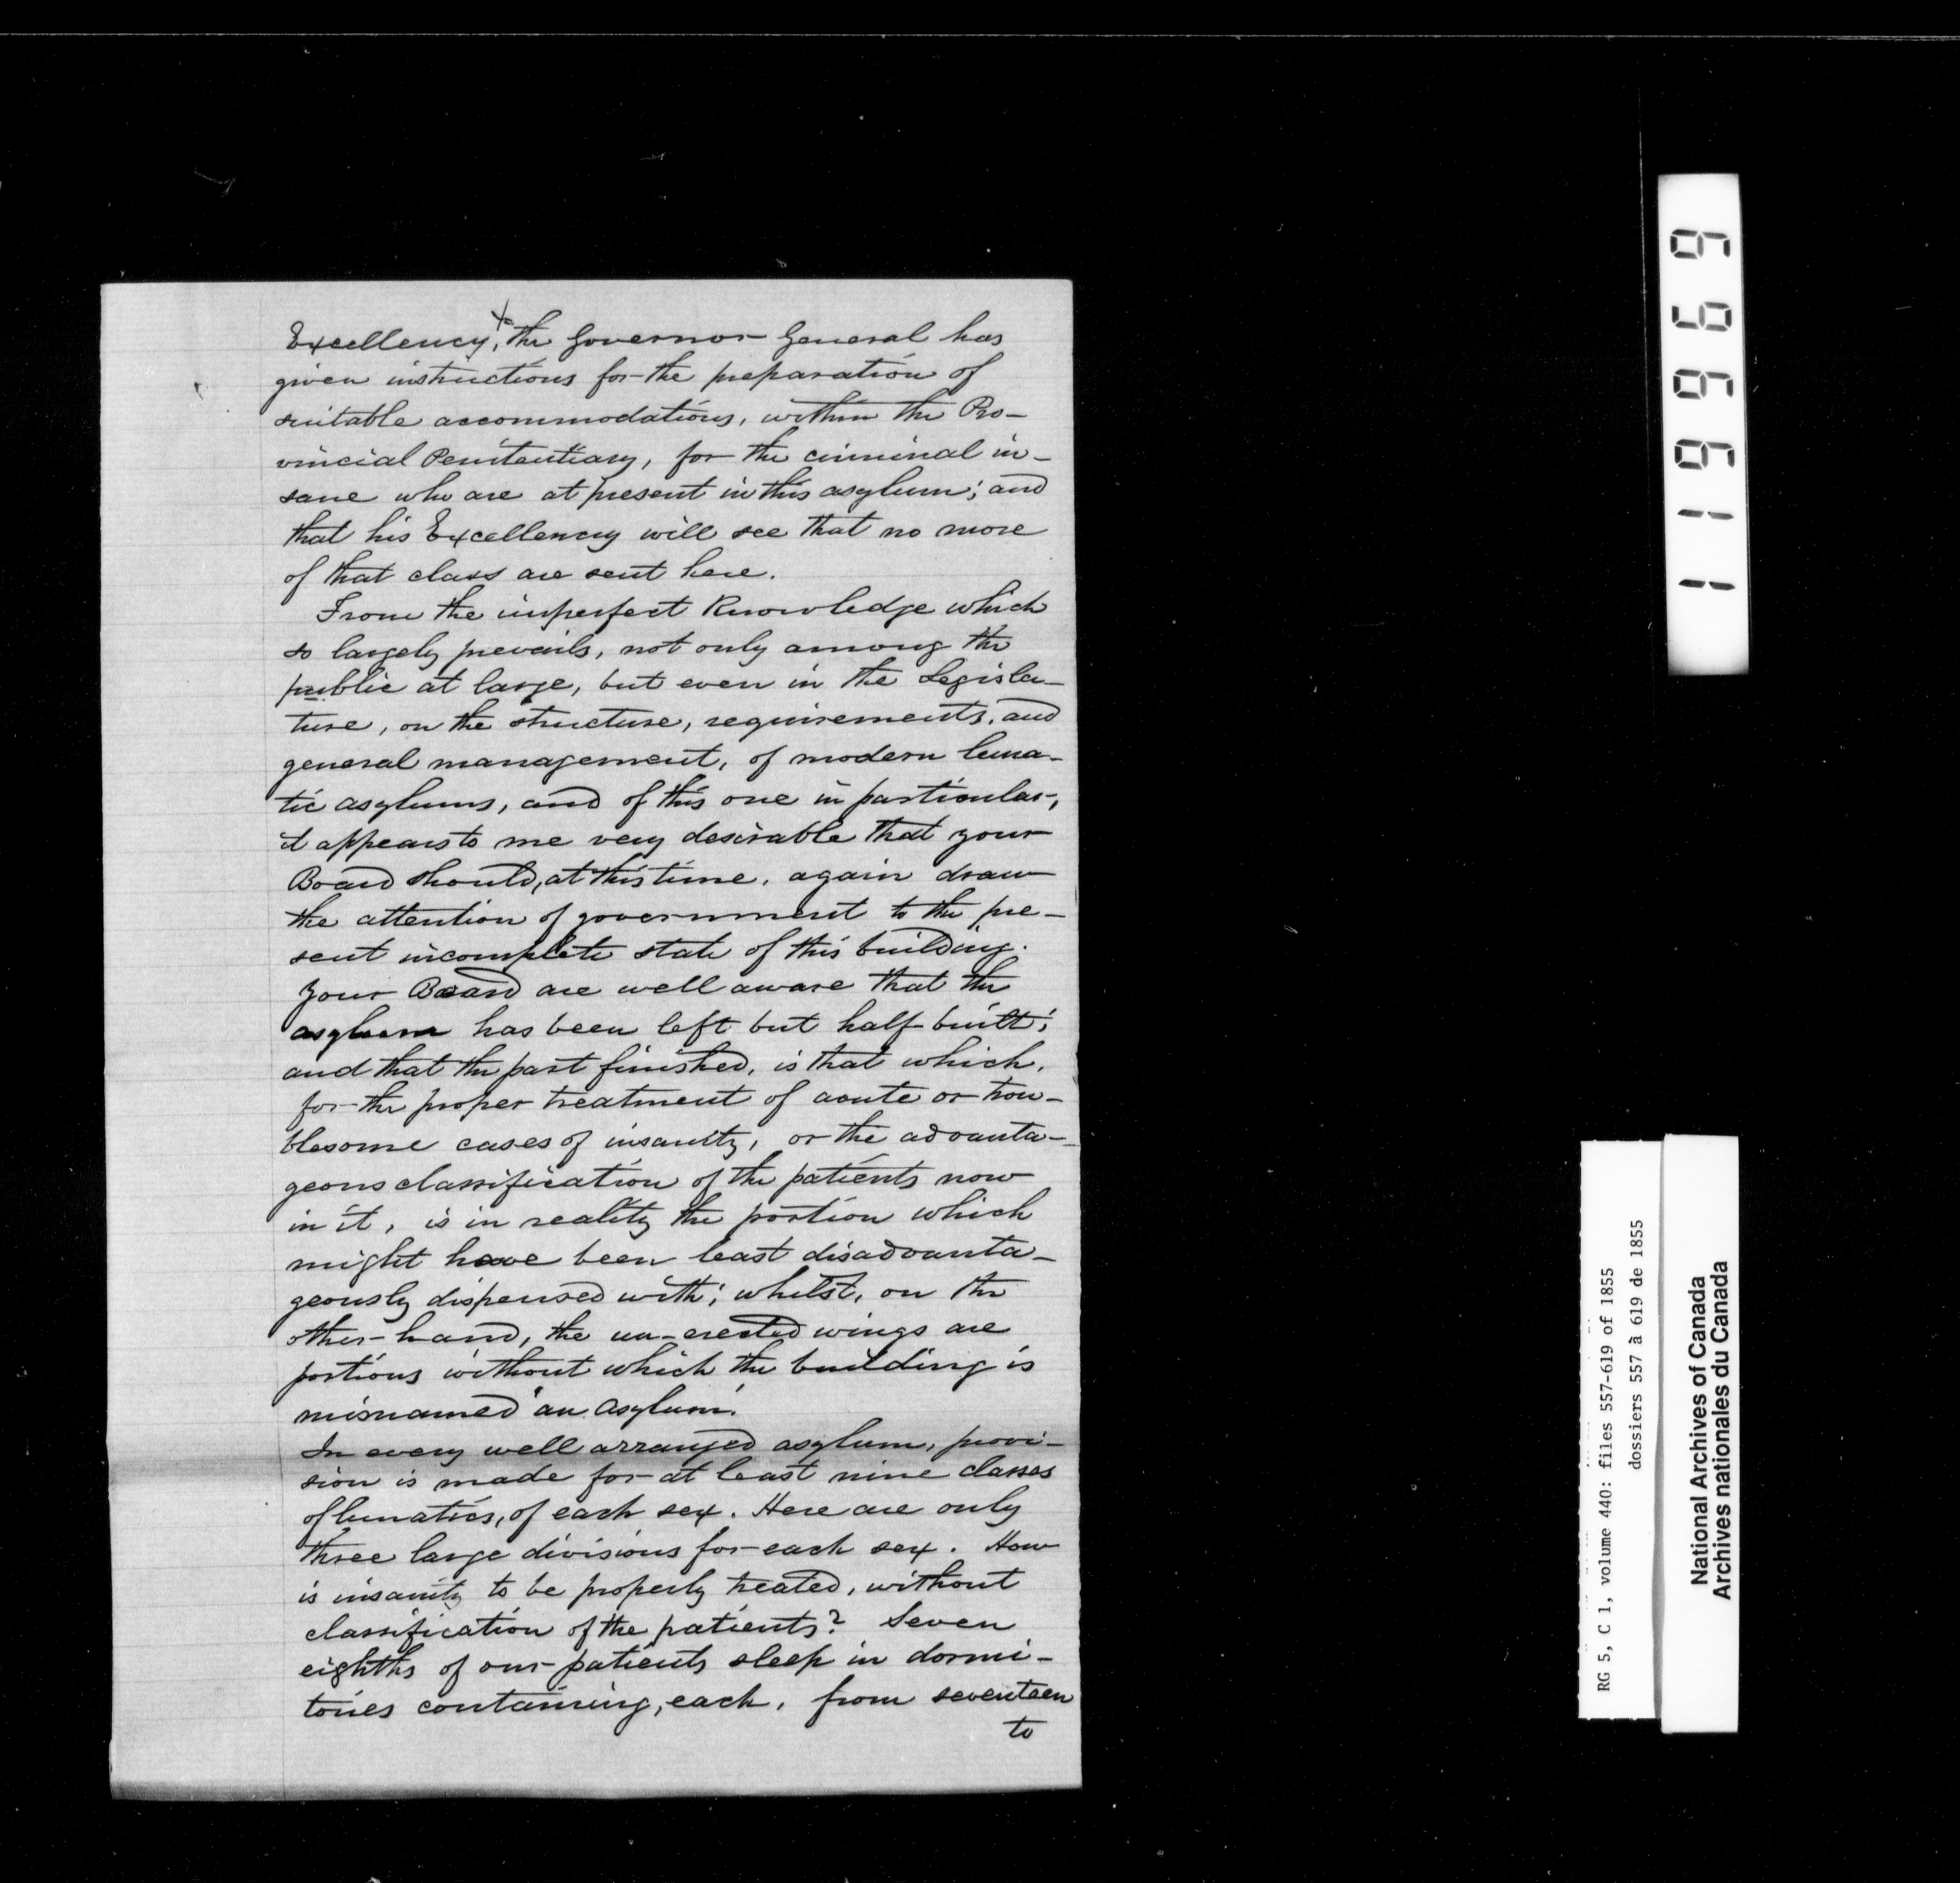 Excellency, the Governor General has
given instructions for the preparation of
suitable accommodations, within the Pro-
vincial Penitentiary, for the criminal in-
sane who are at present in this asylum; and
that his Excellency will see that no more
of that class are sent here.
From the imperfect knowledge which
so largely prevails, not only among the
public at large, but even in the Legisla-
ture, on the structure, requirements, and
general management, of modern luna-
tic asylums, and of this one in particular,
it appears to me very desirable that your
Board should, at this time, again draw
the attention of government to the pre-
sent incomplete state of this building.
Your Board are well aware that the
asylum has been left but half-built;
and that the part finished, is that which,
for the proper treatment of acute or trou-
blesome cases of insanity, or the advanta-
geous classification of the patients now
in it, is in reality the portion which
might have been least disadvanta-
geously dispensed with; whilst, on the
other-hand, the un-erected wings are
portions without which the building is
misnamed "an Asylum".
In every well arranged asylum, provi-
sion is made for at least nine classes
of lunatics, of each sex. Here are only
three large divisions for each sex. How
is insanity to be properly treated, without
classification of the patients? Seven
eighths of our patients sleep in dormi-
tories containing, each, from seventeen
to
119969
RG 5, C 1, volume 440: files 557-619 of 1855
dossiers 557 à 619 de 1855
National Archives of Canada
Archives nationales du Canada